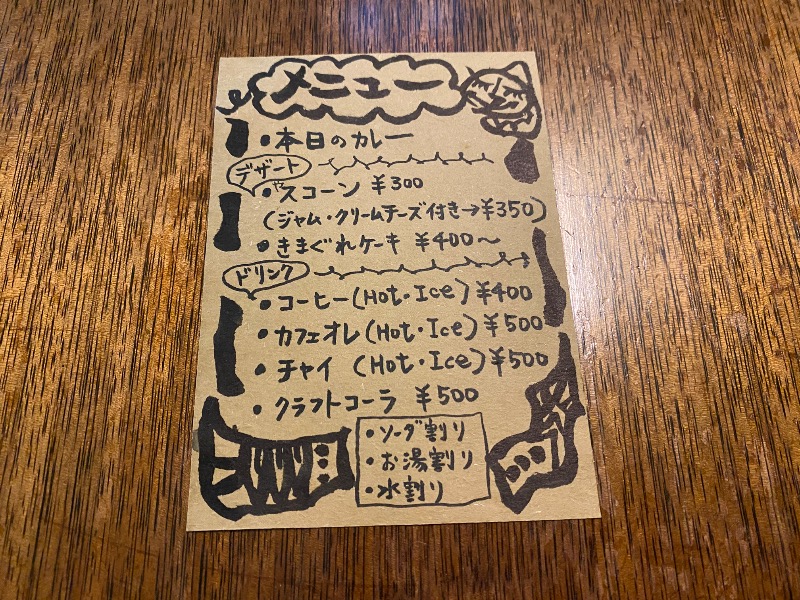 メニュー
・本日のカレー
デザート
・スコーン ¥300
(ジャム・クリームチーズ付き→¥350)
・きまぐれケーキ ¥400〜
ドリンク
・コーヒー(Hot・Ice)¥400
・カフェオレ(Hot・Ice)¥500
・チャイ (Hot・Ice)¥500
・クラフトコーラ ¥500
・ソーダ割り
・お湯割り
・水割り